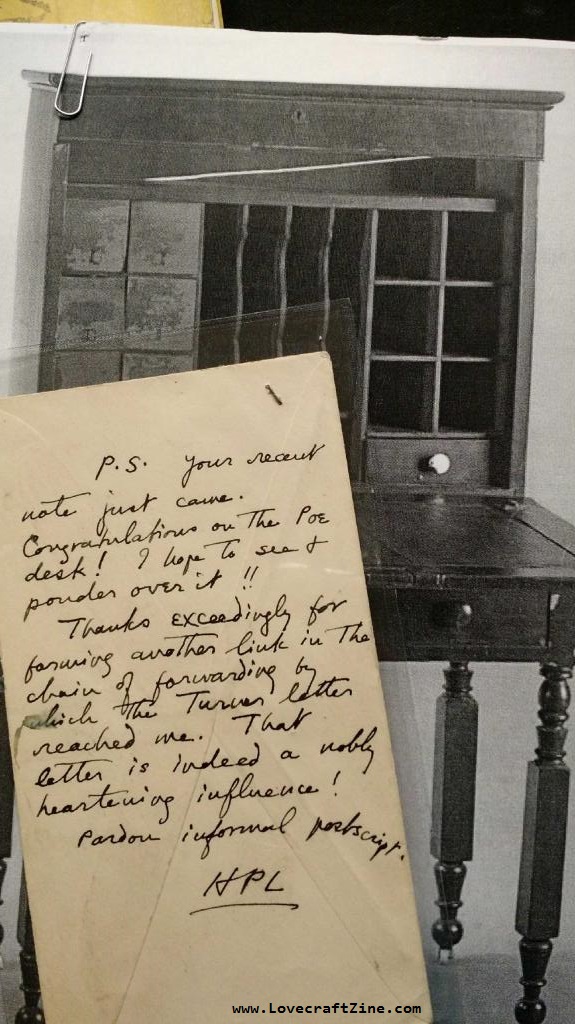 P.S. Your recent
note just came.
Congratulations on the Poe
desk! I hope to see &
ponder over it !!
Thanks exceedingly for
forming another link in the
chain of forwarding by
which the Turner letter
reached me. That
letter is indeed a nobly
heartening influence!
Pardon informal postscript.
HPL
www.LovecraftZine.com